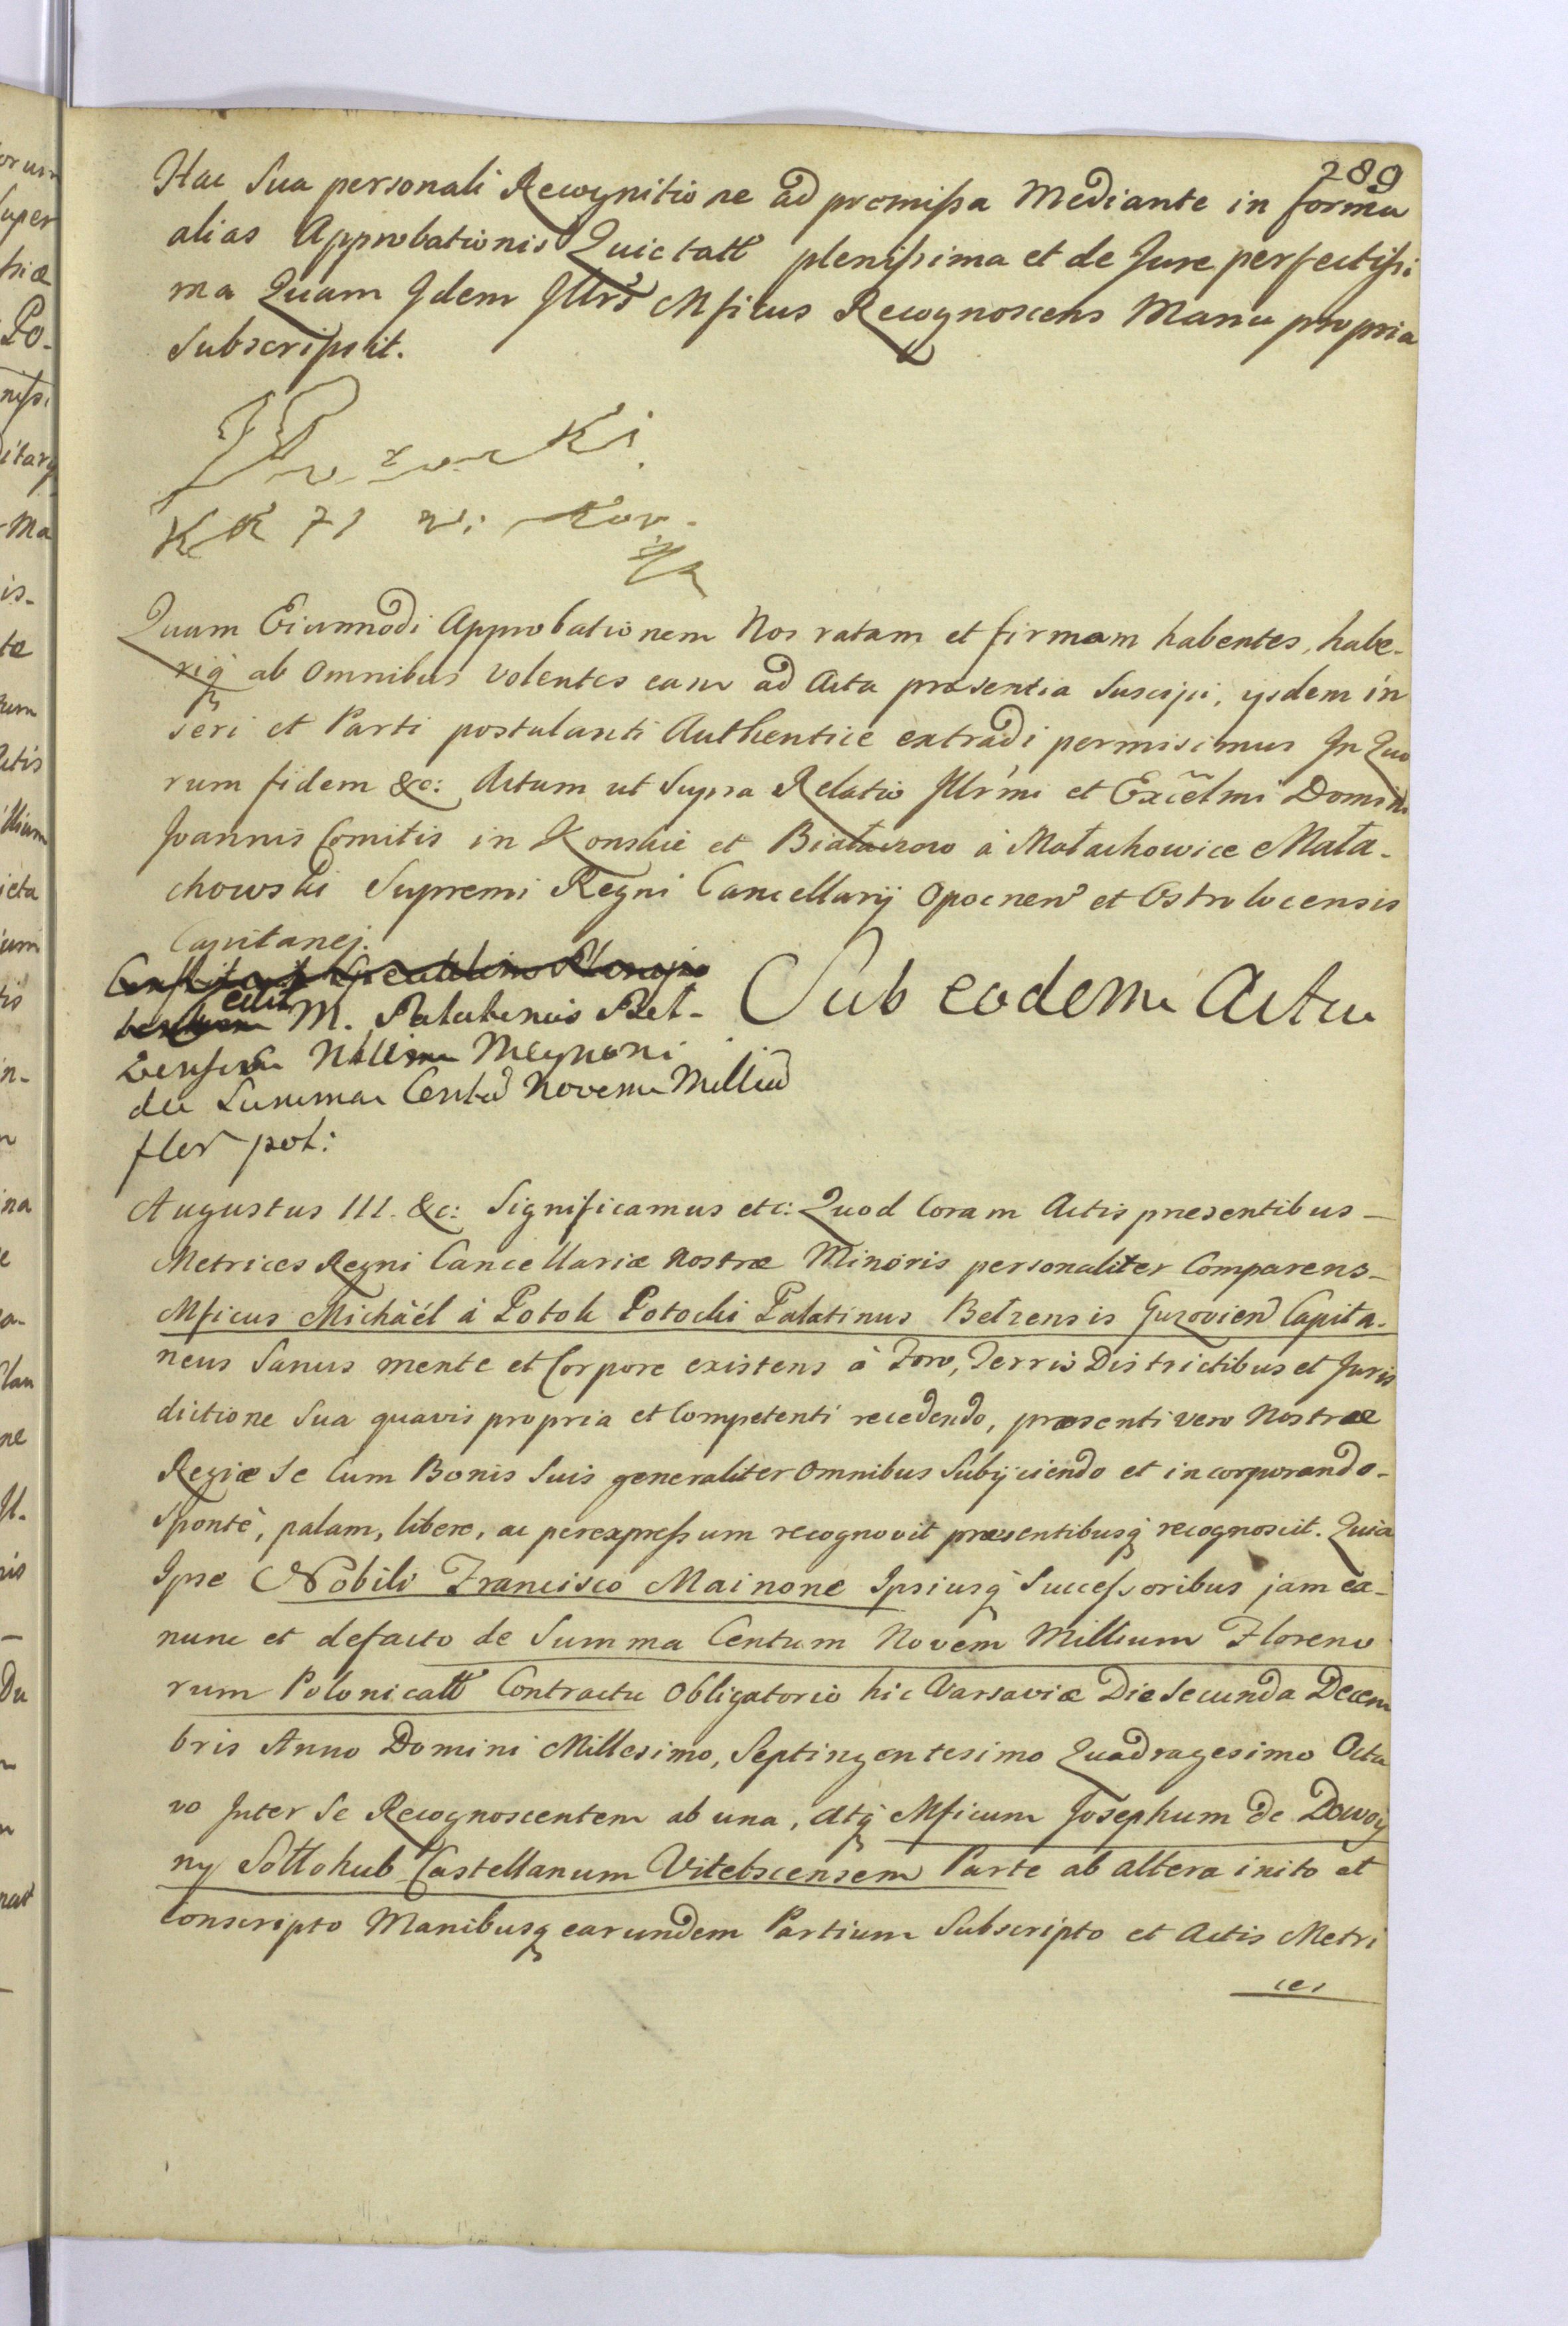 289
Hac Sua personali Recognitione ad promissa Mediante in forma
alias Approbationis Quietatt plenissima et de Jure perfectissi
ma Quam Idem Illrs Mficus Recognoscens Manu propria
Subscripsit.
Quam Eiusmodi Approbationem Nos ratam et firmam habentes, habe-
riq ab Omnibus Volentes eam ad Acta præsentia Suscipi, ijsdem in
seri et Parti postulanti Authentice extradi permisimus In Quo
rum fidem &c: Actum ut Supra Relatio Illrmi et Excelmi Domini
Joannis Comitis in Konskie et Białaczow à Małachowice Mała-
chowski Supremi Regni Cancellarij Opocnen et Ostrolocensis
Capitanei.
Sub eodem Actu
cedit M. Palatinus Bel-
zensis Nbli Meynoni
de Summa Centu Novem Milliu
flor pol:
Augustus III. &c: Significamus etc: Quod Coram Actis præsentibus -
Metrices Regni Cancellariæ Nostræ Minoris personaliter Comparens -
Mficus Michàél à Potok Potocki Palatinus Belzensis Guzovien Capita-
neus Sanus mente et Corpore existens à Foro, Terris Districtibus et Juris
dictione Sua quavis propria et Competenti recedendo, præsenti vero Nostræ
Regiæ Se Cum Bonis Suis generaliter Omnibus Subijciendo et incorporando -
Sponte, palam, libere, ac per expressum recognovit præsentibusq recognoscit. Quia
Ipse Nobili Francisco Mainone Ipsiusq Successoribus jam ea-
nunc et defacto de Summa Centum Novem Millium Floreno
rum Polonicatt Contractu Obligatorio hic Varsaviæ Die Secunda Decem
bris Anno Domini Millesimo, Septingentesimo Quadragesimo Octa
vo Inter Se Recognoscentem ab una, Atq Mficum Josephum de Dowoy
ny Sołłohub Castellanum Vitebscensem Parte ab altera inito et
Conscripto Manibusq earundem Partium Subscripto et Actis Metri
ces